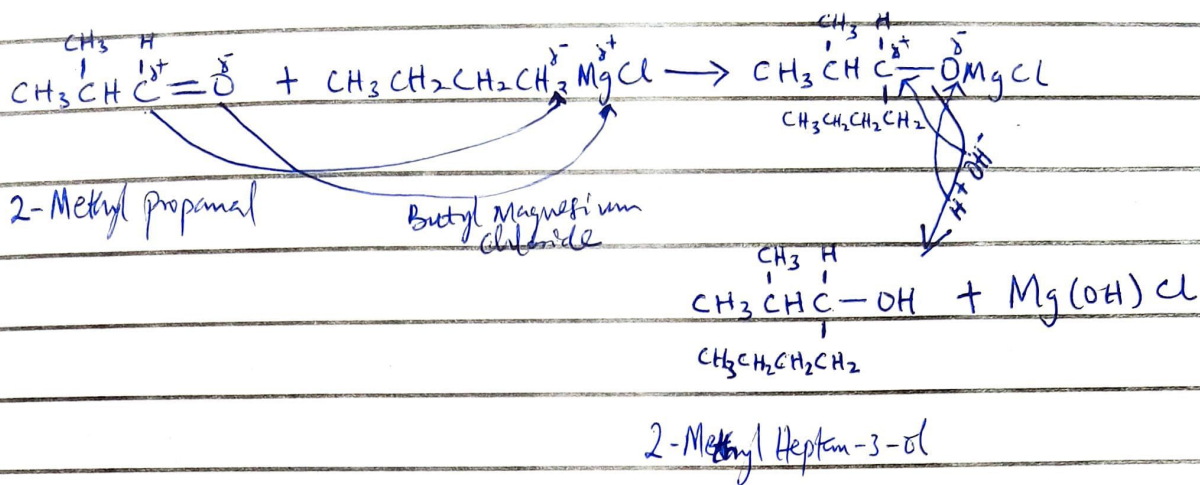 CH3 H CH3 H
δ+ δ- δ- δ+ δ+ δ-
CH3 CH C = O + CH3 CH2 CH2 CH2 MgCl → CH3 CH C — OMgCl
CH3 CH2 CH2 CH2
H+ OH-
2-Methyl propanal Butyl Magnesium
chloride
CH3 H
CH3 CH C — OH + Mg(OH)Cl
CH3 CH2 CH2 CH2
2-Methyl Heptan-3-ol